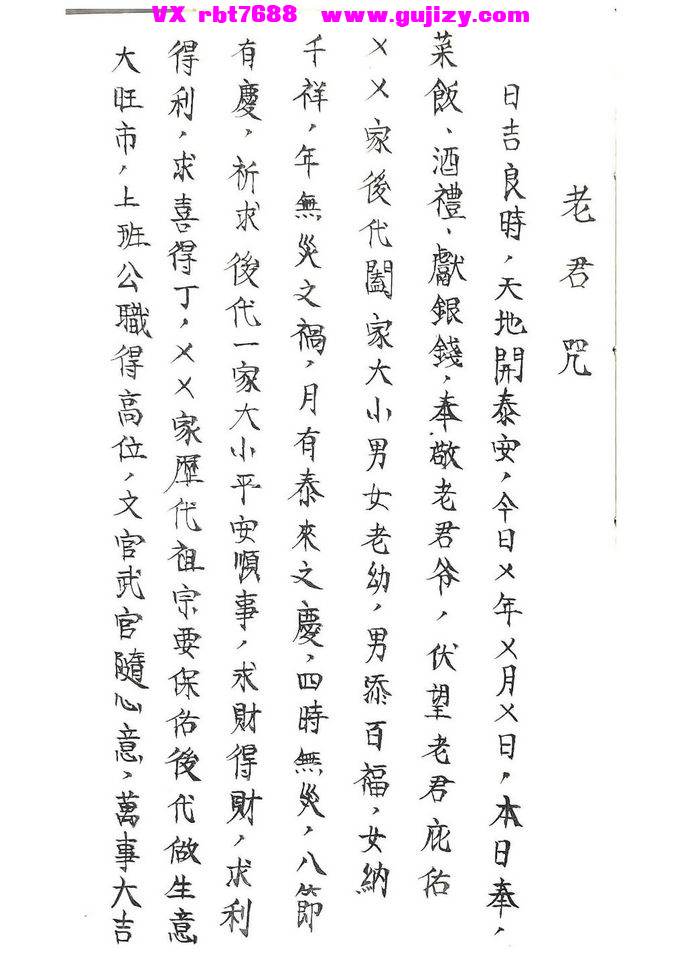 VX rbt7688 www.gujizy.com
老君咒
日吉良時，天地開泰安，今日乂年乂月乂日，本日奉，
菜飯、酒禮、獻銀錢，奉敬老君爷，伏望老君庇佑
乂乂家後代闔家大小男女老幼，男添百福，女納
千祥，年無災文禍，月有泰來文慶，四時無災，八節
有慶，祈求後代一家大小平安順事，求財得財，求利
得利，求喜得丁，乂乂家歷代祖宗要保佑後代做生意
大旺市，上班公職得高位，文官武官隨心意，萬事大吉